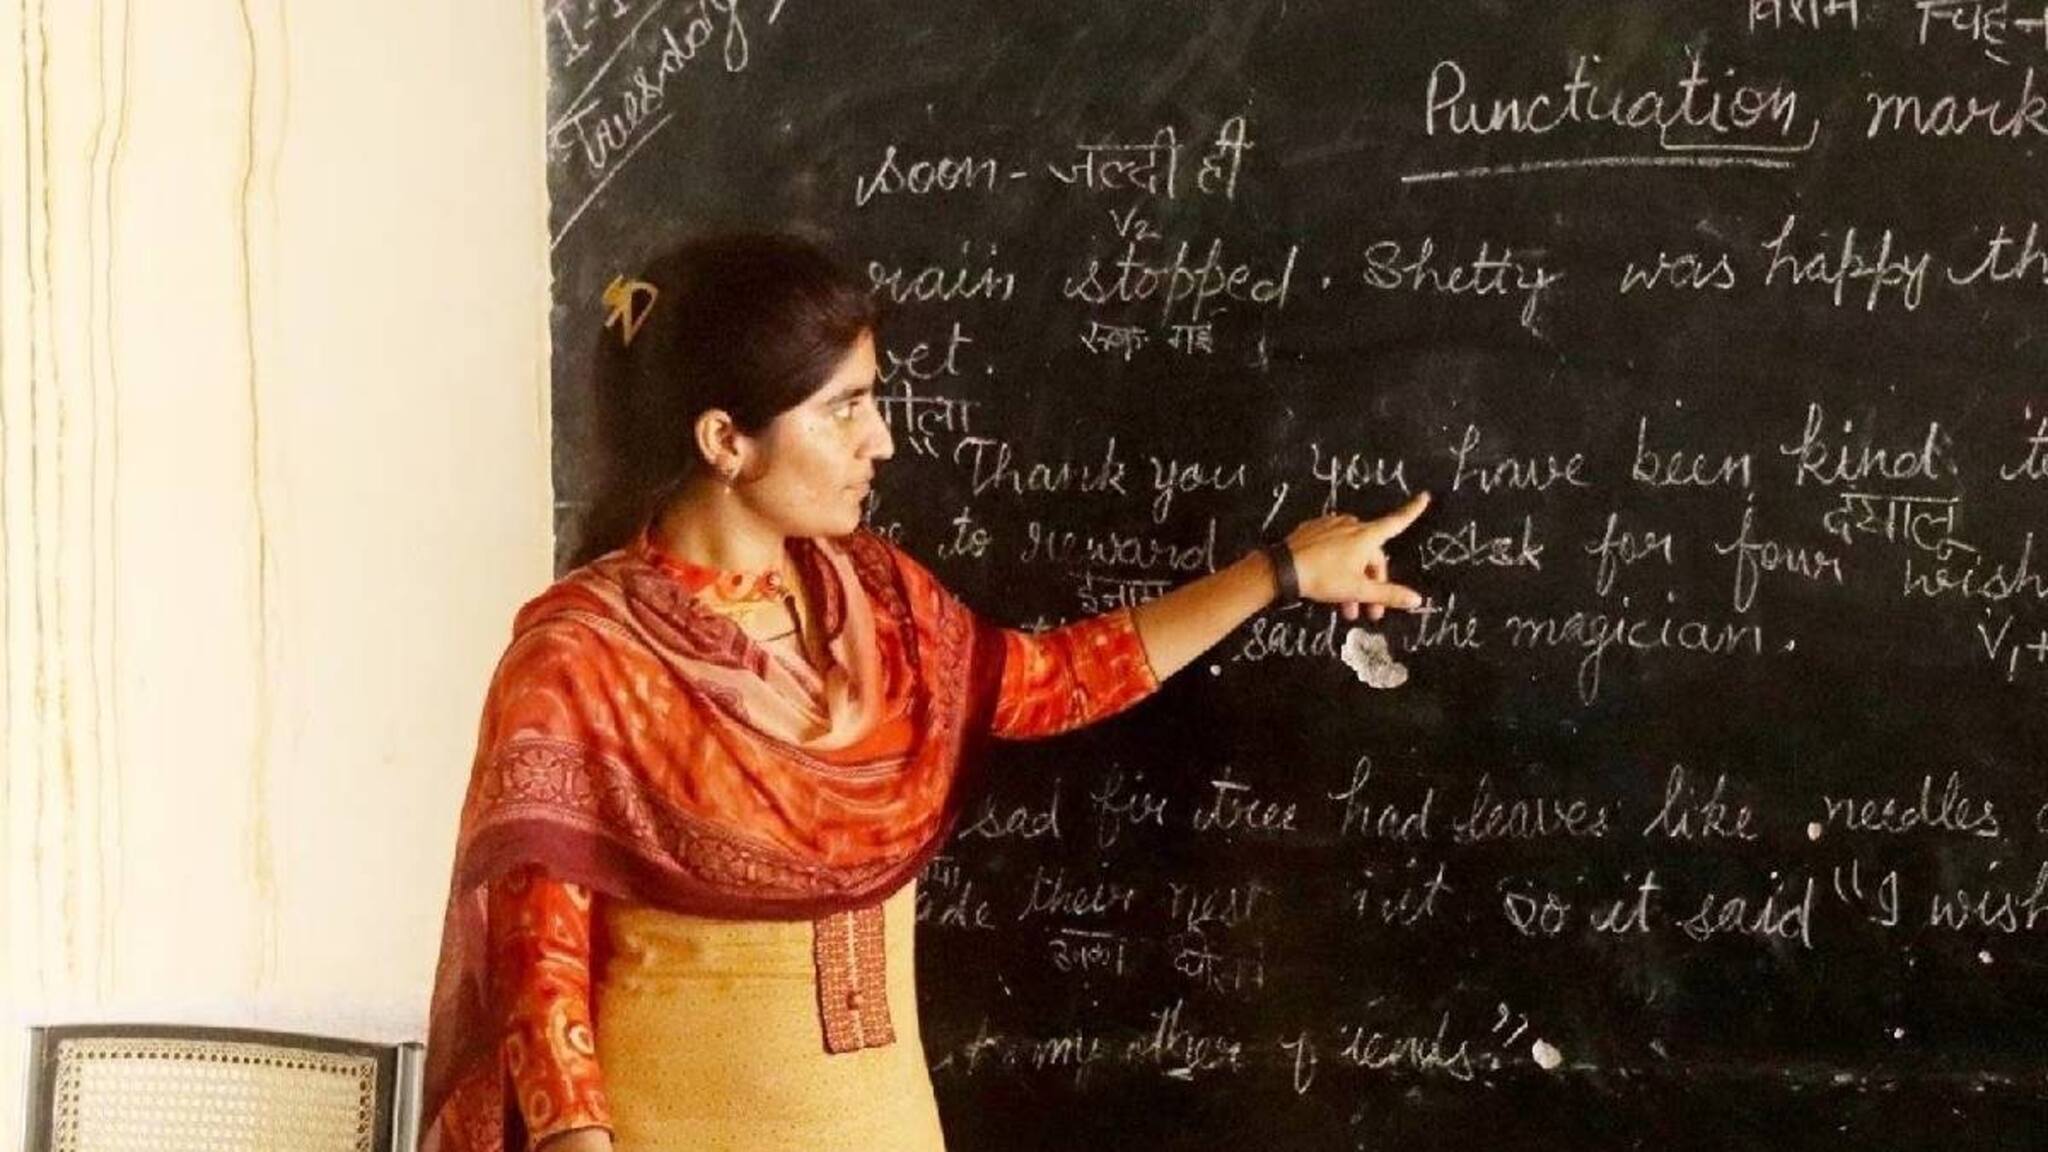 Tuesday
विराम चिह्न
Punctuation mark
soon - जल्दी ही
V2
rain stopped. Shetty was happy th
रुक गई
wet.
गीला
"Thank you, you have been kind to
दयालु
to reward Ask for four wish
ईनाम
said the magician. V1+
sad fir tree had leaves like needles
ade their nest in it so it said "I wish
उनका
my other friends"